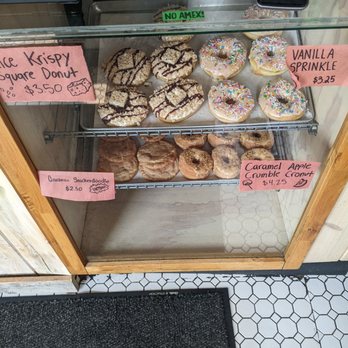 NO AMEX!
ice Krispy
Square Donut
$3.50
VANILLA
SPRINKLE
$3.25
Snickerdoodle
$2.50
Caramel Apple
Crumble Cronut
$4.25